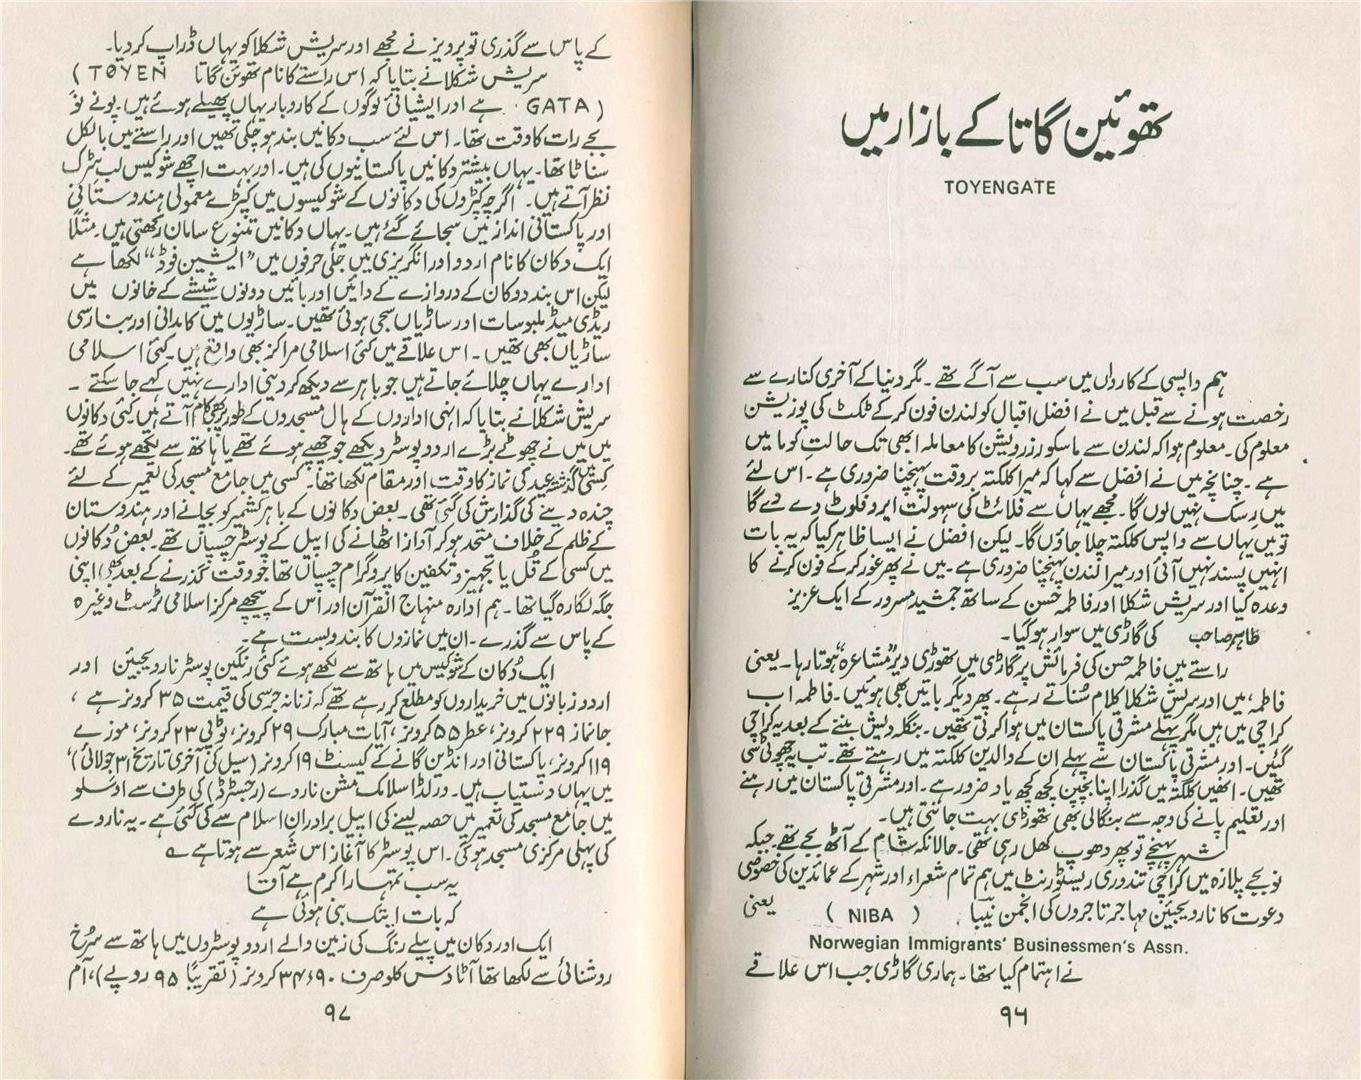 تھوئین گاتا کے بازار میں
TOYENGATE
ہم واپسی کے کارواں میں سب سے آگے تھے ۔ مگر دنیا کے آخری کنارے سے
رخصت ہونے سے قبل میں نے افضل اقبال کو لندن فون کر کے ٹکٹ کی پوزیشن
معلوم کی ۔ معلوم ہوا کہ لندن سے ماسکو رزرویشن کا معاملہ ابھی تک حالتِ کوما میں
ہے ۔ چنانچہ میں نے افضل سے کہا کہ میرا کلکتہ بروقت پہنچنا ضروری ہے ۔ اس لئے
میں رِسک نہیں لوں گا ۔ مجھے یہاں سے فلائٹ کی سہولت ایروفلوٹ دے دے گا
تو میں یہاں سے واپس کلکتہ چلا جاؤں گا ۔ لیکن افضل نے ایسا ظاہر کیا کہ یہ بات
انہیں پسند نہیں آئی اور میرا لندن پہنچنا ضروری ہے ۔ میں نے پھر غور کر کے فون کرنے کا
وعدہ کیا اور سریش شکلا اور فاطمہ حسن کے ساتھ جمشید مسرور کے ایک عزیز
طاہر صاحب کی گاڑی میں سوار ہو گیا ۔
راستے میں فاطمہ حسن کی فرمائش پر گاڑی میں تھوڑی دیر "مشاعرہ" ہوتا رہا ۔ یعنی
فاطمہ، میں اور سریش شکلا کلام سُناتے رہے ۔ پھر دیگر باتیں بھی ہوئیں ۔ فاطمہ اب
کراچی میں ہیں مگر پہلے مشرقی پاکستان میں ہوا کرتی تھیں ۔ بنگلہ دیش بننے کے بعد یہ کراچی
گئیں ۔ اور مشرقی پاکستان سے پہلے ان کے والدین کلکتہ میں رہتے تھے ۔ تب یہ چھوٹی سی
تھیں ۔ انھیں کلکتہ میں گذرا اپنا بچپن کچھ کچھ یاد ضرور ہے ۔ اور مشرقی پاکستان میں رہنے
اور تعلیم پانے کی وجہ سے بنگالی بھی تھوڑی بہت جانتی ہیں ۔
شہر پہنچے تو پھر دھوپ کھل رہی تھی ۔ حالانکہ شام کے آٹھ بجے تھے ۔ جبکہ
نو بجے پلازہ میں کراچی تندوری ریسٹورنٹ میں ہم تمام شعراء اور شہر کے عمائدین کی خصوصی
دعوت کا نارویجیئن مہاجر تاجروں کی انجمن نیبا ( NIBA ) یعنی
Norwegian Immigrants' Businessmen's Assn.
نے اہتمام کیا تھا ۔ ہماری گاڑی جب اس علاقے
۹۶
کے پاس سے گذری تو پرویز نے مجھے اور سریش شکلا کو یہاں ڈراپ کر دیا ۔
سریش شکلا نے بتایا کہ اس راستے کا نام تھوئن گاتا ( TØYEN
GATA ) ہے اور ایشیائی لوگوں کے کاروبار یہاں پھیلے ہوئے ہیں ۔ پونے نو
بجے رات کا وقت تھا ۔ اس لئے سب دکانیں بند ہو چکی تھیں اور راستے میں بالکل
سناٹا تھا ۔ یہاں بیشتر دکانیں پاکستانیوں کی ہیں ۔ اور بہت اچھے شوکیس لب سڑک
نظر آتے ہیں ۔ اگرچہ کپڑوں کی دکانوں کے شوکیسوں میں کپڑے معمولی ہندوستانی
اور پاکستانی انداز میں سجائے گئے ہیں ۔ یہاں دکانیں متنوع سامان رکھتی ہیں ۔ مثلاً
ایک دکان کا نام اردو اور انگریزی میں جلی حرفوں میں "ایشین فوڈ" لکھا ہے
لیکن اس بند دوکان کے دروازے کے دائیں اور بائیں دونوں شیشے کے خانوں میں
ریڈی میڈ ملبوسات اور ساڑیاں سجی ہوئی تھیں ۔ ساڑیوں میں کامدانی اور بنارسی
ساڑیاں بھی تھیں ۔ اس علاقے میں کئی اسلامی مراکز بھی واقع ہیں ۔ کئی اسلامی
ادارے یہاں چلائے جاتے ہیں جو باہر سے دیکھ کر دینی ادارے نہیں کہے جا سکتے ۔
سریش شکلا نے بتایا کہ انہی اداروں کے ہال مسجدوں کے طور پر بھی کام آتے ہیں ۔ کئی دکانوں
میں میں نے چھوٹے بڑے اردو پوسٹر دیکھے جو چھپے ہوئے تھے یا ہاتھ سے لکھے ہوئے تھے ۔
کسی میں گذشتہ عید کی نماز کا وقت اور مقام لکھا تھا ۔ کسی میں جامع مسجد کی تعمیر کے لئے
چندہ دینے کی گذارش کی گئی تھی ۔ بعض دکانوں کے باہر کشمیر کو بچانے اور ہندوستان
کے ظلم کے خلاف متحد ہو کر آواز اٹھانے کی اپیل کے پوسٹر چسپاں تھے ۔ بعض دُکانوں
میں کسی کے قُل یا تجہیز و تکفین کا پروگرام چسپاں تھا جو وقت گذرنے کے بعد بھی اپنی
جگہ لگا رہ گیا تھا ۔ ہم ادارہ منہاج القرآن اور اس کے پیچھے مرکز اسلامی ٹرسٹ وغیرہ
کے پاس سے گذرے ۔ ان میں نمازوں کا بندوبست ہے ۔
ایک دُکان کے شوکیس میں ہاتھ سے لکھے ہوئے کئی رنگین پوسٹر نارویجیئن اور
اردو زبانوں میں خریداروں کو مطلع کر رہے تھے کہ زنانہ جرسی کی قیمت ۳۵ کرونرز ہے ،
جانماز ۲۲۹ کرونرز، عطر ۵۵ کرونرز، آیات مبارک ۲۹ کرونرز، ٹوپی ۲۳ کرونرز، موزے
۱۱۹ کرونرز، پاکستانی اور انڈین گانے کے کیسٹ ۱۹ کرونرز (سیل کی آخری تاریخ ۳۱ جولائی)
میں یہاں دستیاب ہیں ۔ ورلڈ اسلامک مشن ناروے (رجسٹرڈ) کی طرف سے اوسلو
میں جامع مسجد کی تعمیر میں حصہ لینے کی اپیل برادرانِ اسلام سے کی گئی ہے ۔ یہ ناروے
کی پہلی مرکزی مسجد ہو گی ۔ اس پوسٹر کا آغاز اس شعر سے ہوتا ہے
یہ سب تمہارا کرم ہے آقا
کہ بات ابتک بنی ہوئی ہے
ایک اور دکان میں پیلے رنگ کی زمین والے اردو پوسٹروں میں ہاتھ سے سرخ
روشنائی سے لکھا تھا آٹا دس کلو صرف ۹۰ء۳۴ کرونرز (تقریباً ۹۵ روپے)، آم
۹۷